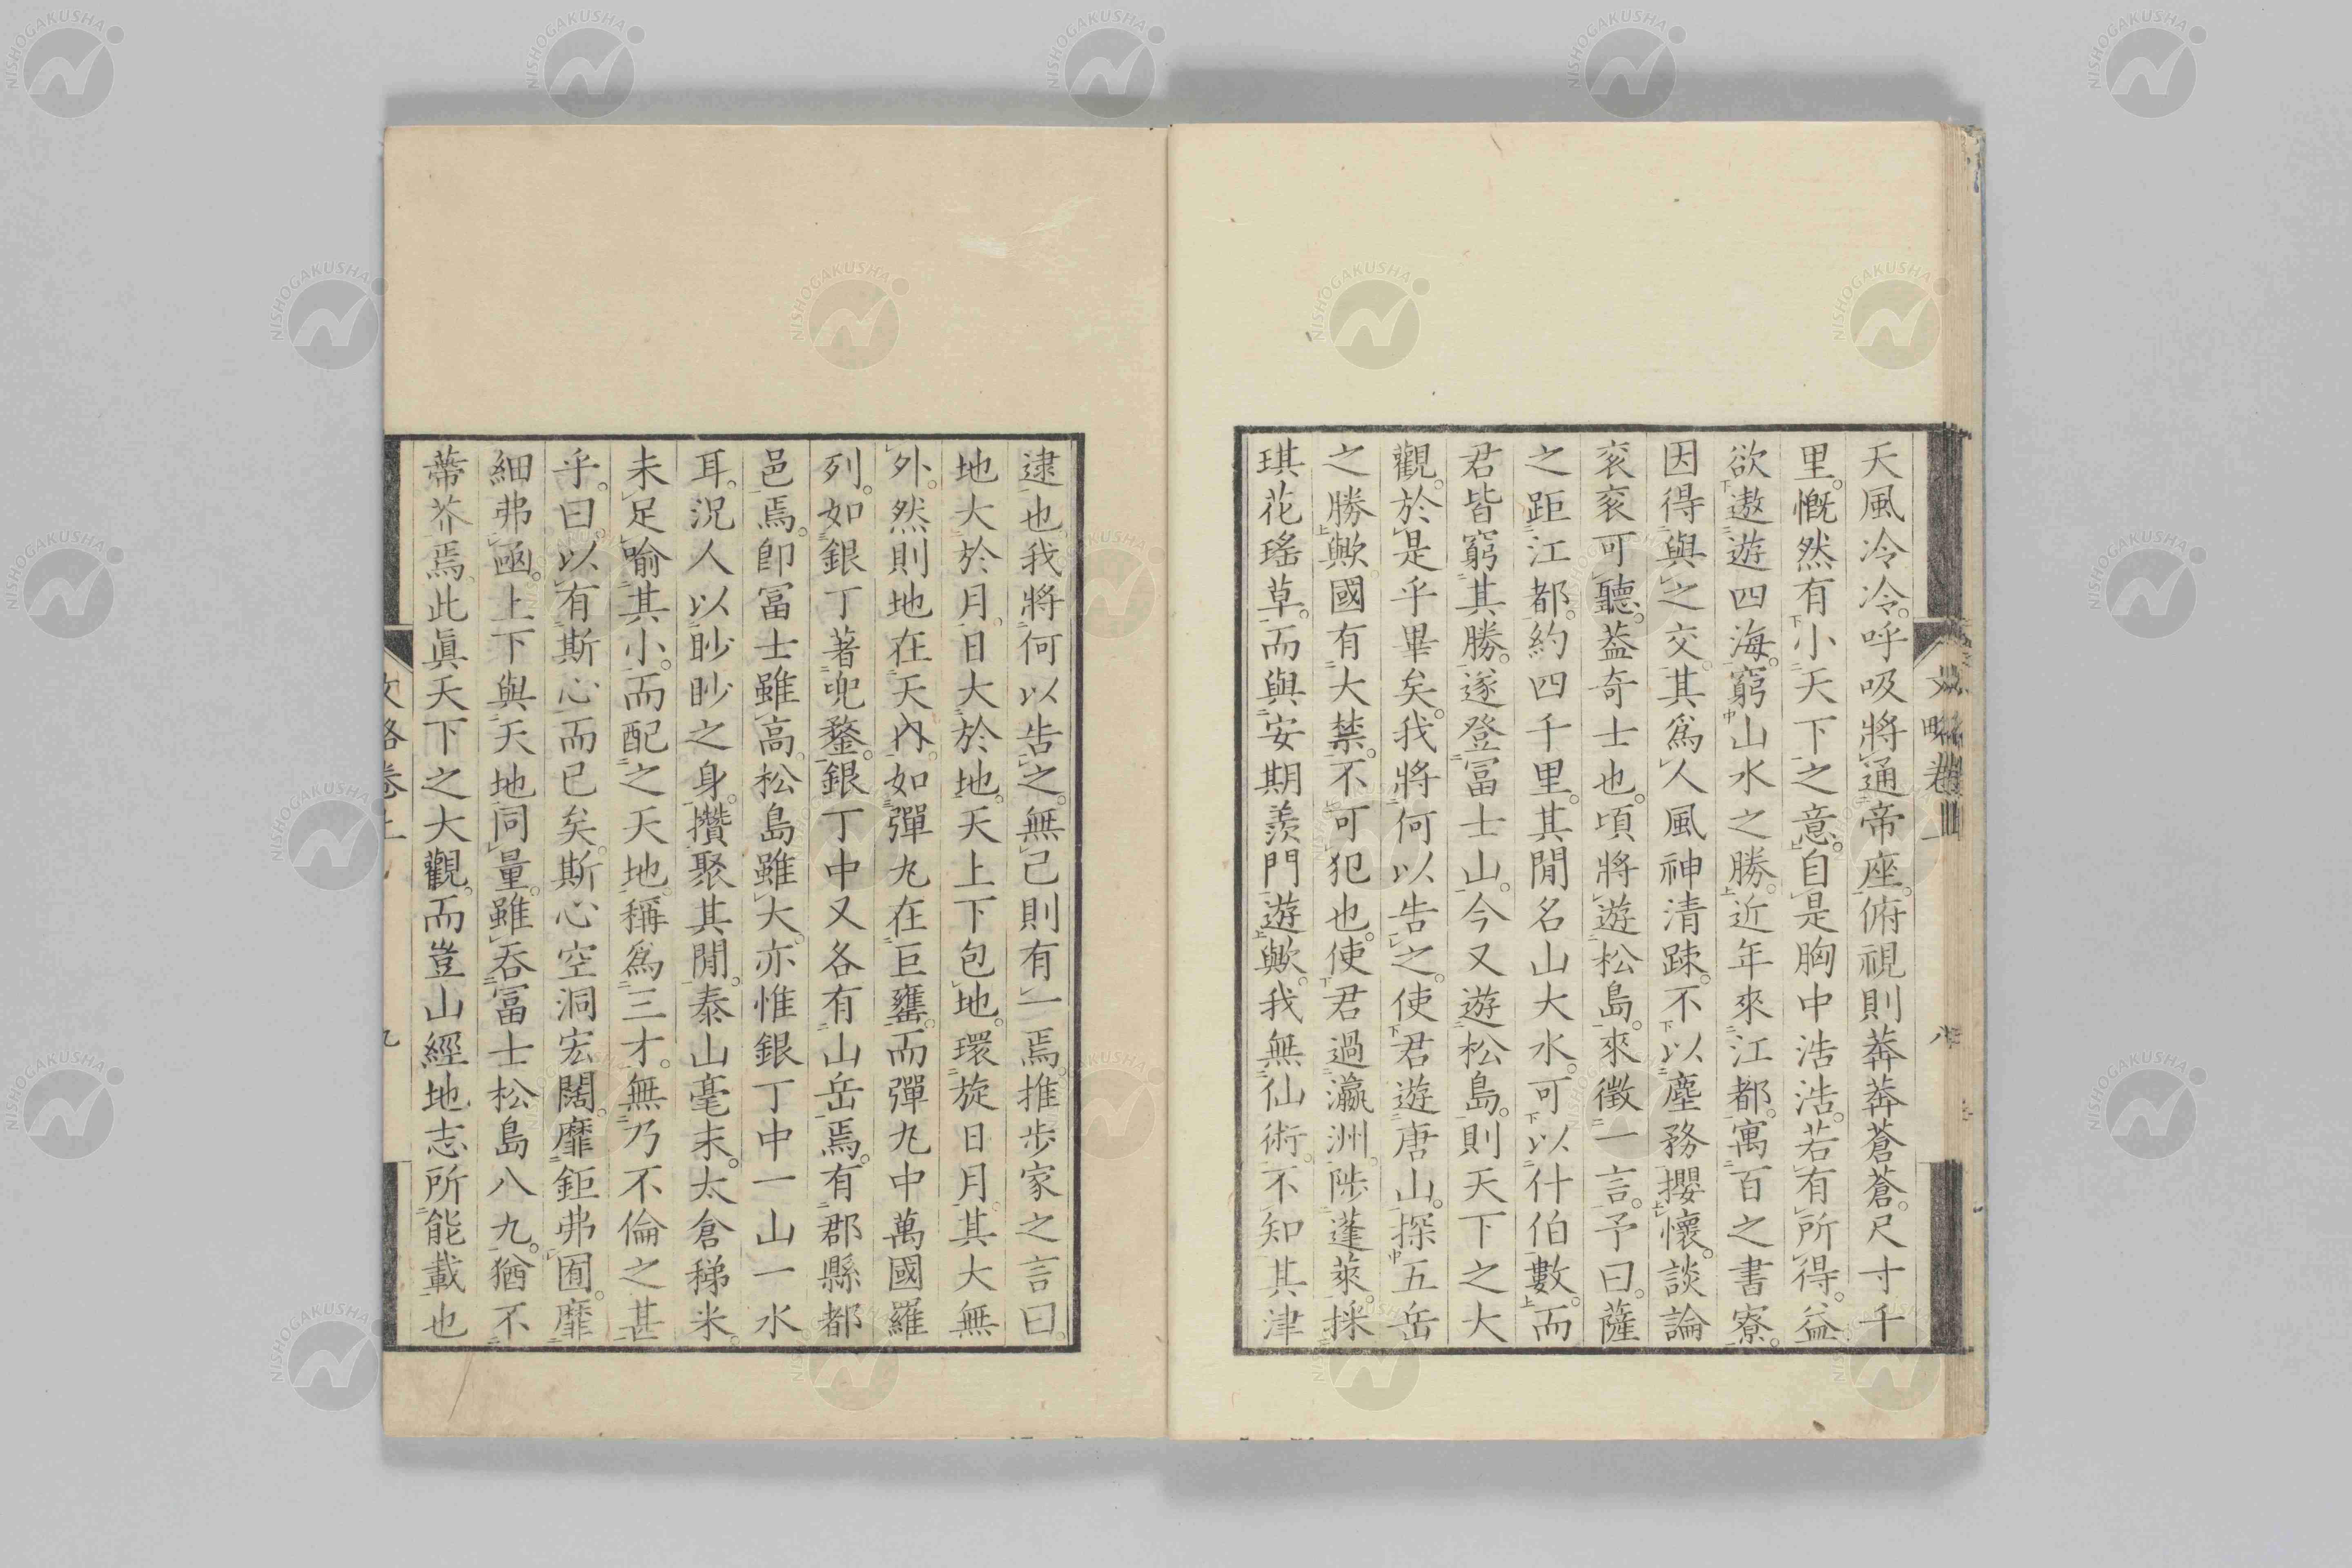 天風冷冷。呼吸將通帝座。俯視則莽莽蒼蒼。尺寸千
里。慨然有小天下之意。自是胸中浩浩。若有所得。益
欲遨遊四海。窮山水之勝。近年來江都。寓百之書寮。
因得與之交。其爲人風神清踈。不以塵務攖懷。談論
衮衮可聽。葢奇士也。頃將遊松島。來徵一言。予曰。薩
之距江都。約四千里。其閒名山大水。可以什伯數。而
君皆窮其勝。遂登冨士山。今又遊松島。則天下之大
觀。於是乎畢矣。我將何以告之。使君遊唐山。探五岳
之勝歟。國有大禁。不可犯也。使君過瀛洲。陟蓬萊。採
琪花瑤草。而與安期羨門遊歟。我無仙術。不知其津
逮也。我將何以告之。無已則有一焉。推步家之言曰。
地大於月。日大於地。天上下包地。環旋日月。其大無
外。然則地在天內。如彈丸在巨甕。而彈丸中萬國羅
列。如銀丁著兜鍪。銀丁中又各有山岳焉。有郡縣都
邑焉。卽冨士雖高。松島雖大。亦惟銀丁中一山一水
耳。況人以眇眇之身。攢聚其閒。泰山毫末。太倉稊米。
未足喻其小。而配之天地。稱爲三才。無乃不倫之甚
乎。曰。以有斯心而已矣。斯心空洞宏闊。靡鉅弗囿。靡
細弗凾。上下與天地同量。雖吞冨士松島八九。猶不
蔕芥焉。此眞天下之大觀。而豈山經地志所能載也
文略卷上
八
九
NISHOGAKUSHA